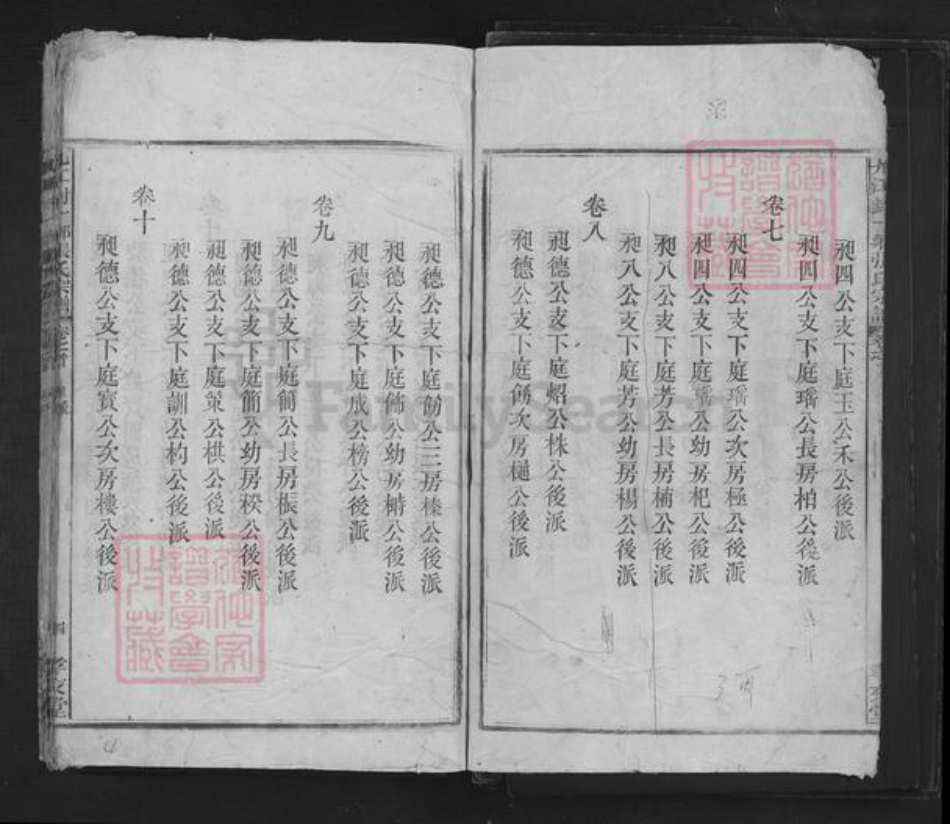 昶四公支下庭玉公禾公後派
昶四公支下庭瑶公長房柏公後派
卷七
昶四公支下庭瑶公次房極公後派
昶四公支下庭瑶公幼房杞公後派
昶八公支下庭芳公長房楠公後派
昶八公支下庭芳公幼房楊公後派
卷八
昶德公支下庭炤公株公後派
昶德公支下庭 次房樋公後派
昶德公支下庭 公三房榛公後派
昶德公支下庭飾公幼房 公後派
昶德公支下庭成公榜公後派
卷九
昶德公支下庭簡公長房桭公後派
昶德公支下庭簡公幼房 公後派
昶德公支下庭策公栱公後派
昶德公支下庭訓公杓公後派
卷十
昶德公支下庭寳公次房樓公後派
四
孝友堂
FamilySearch